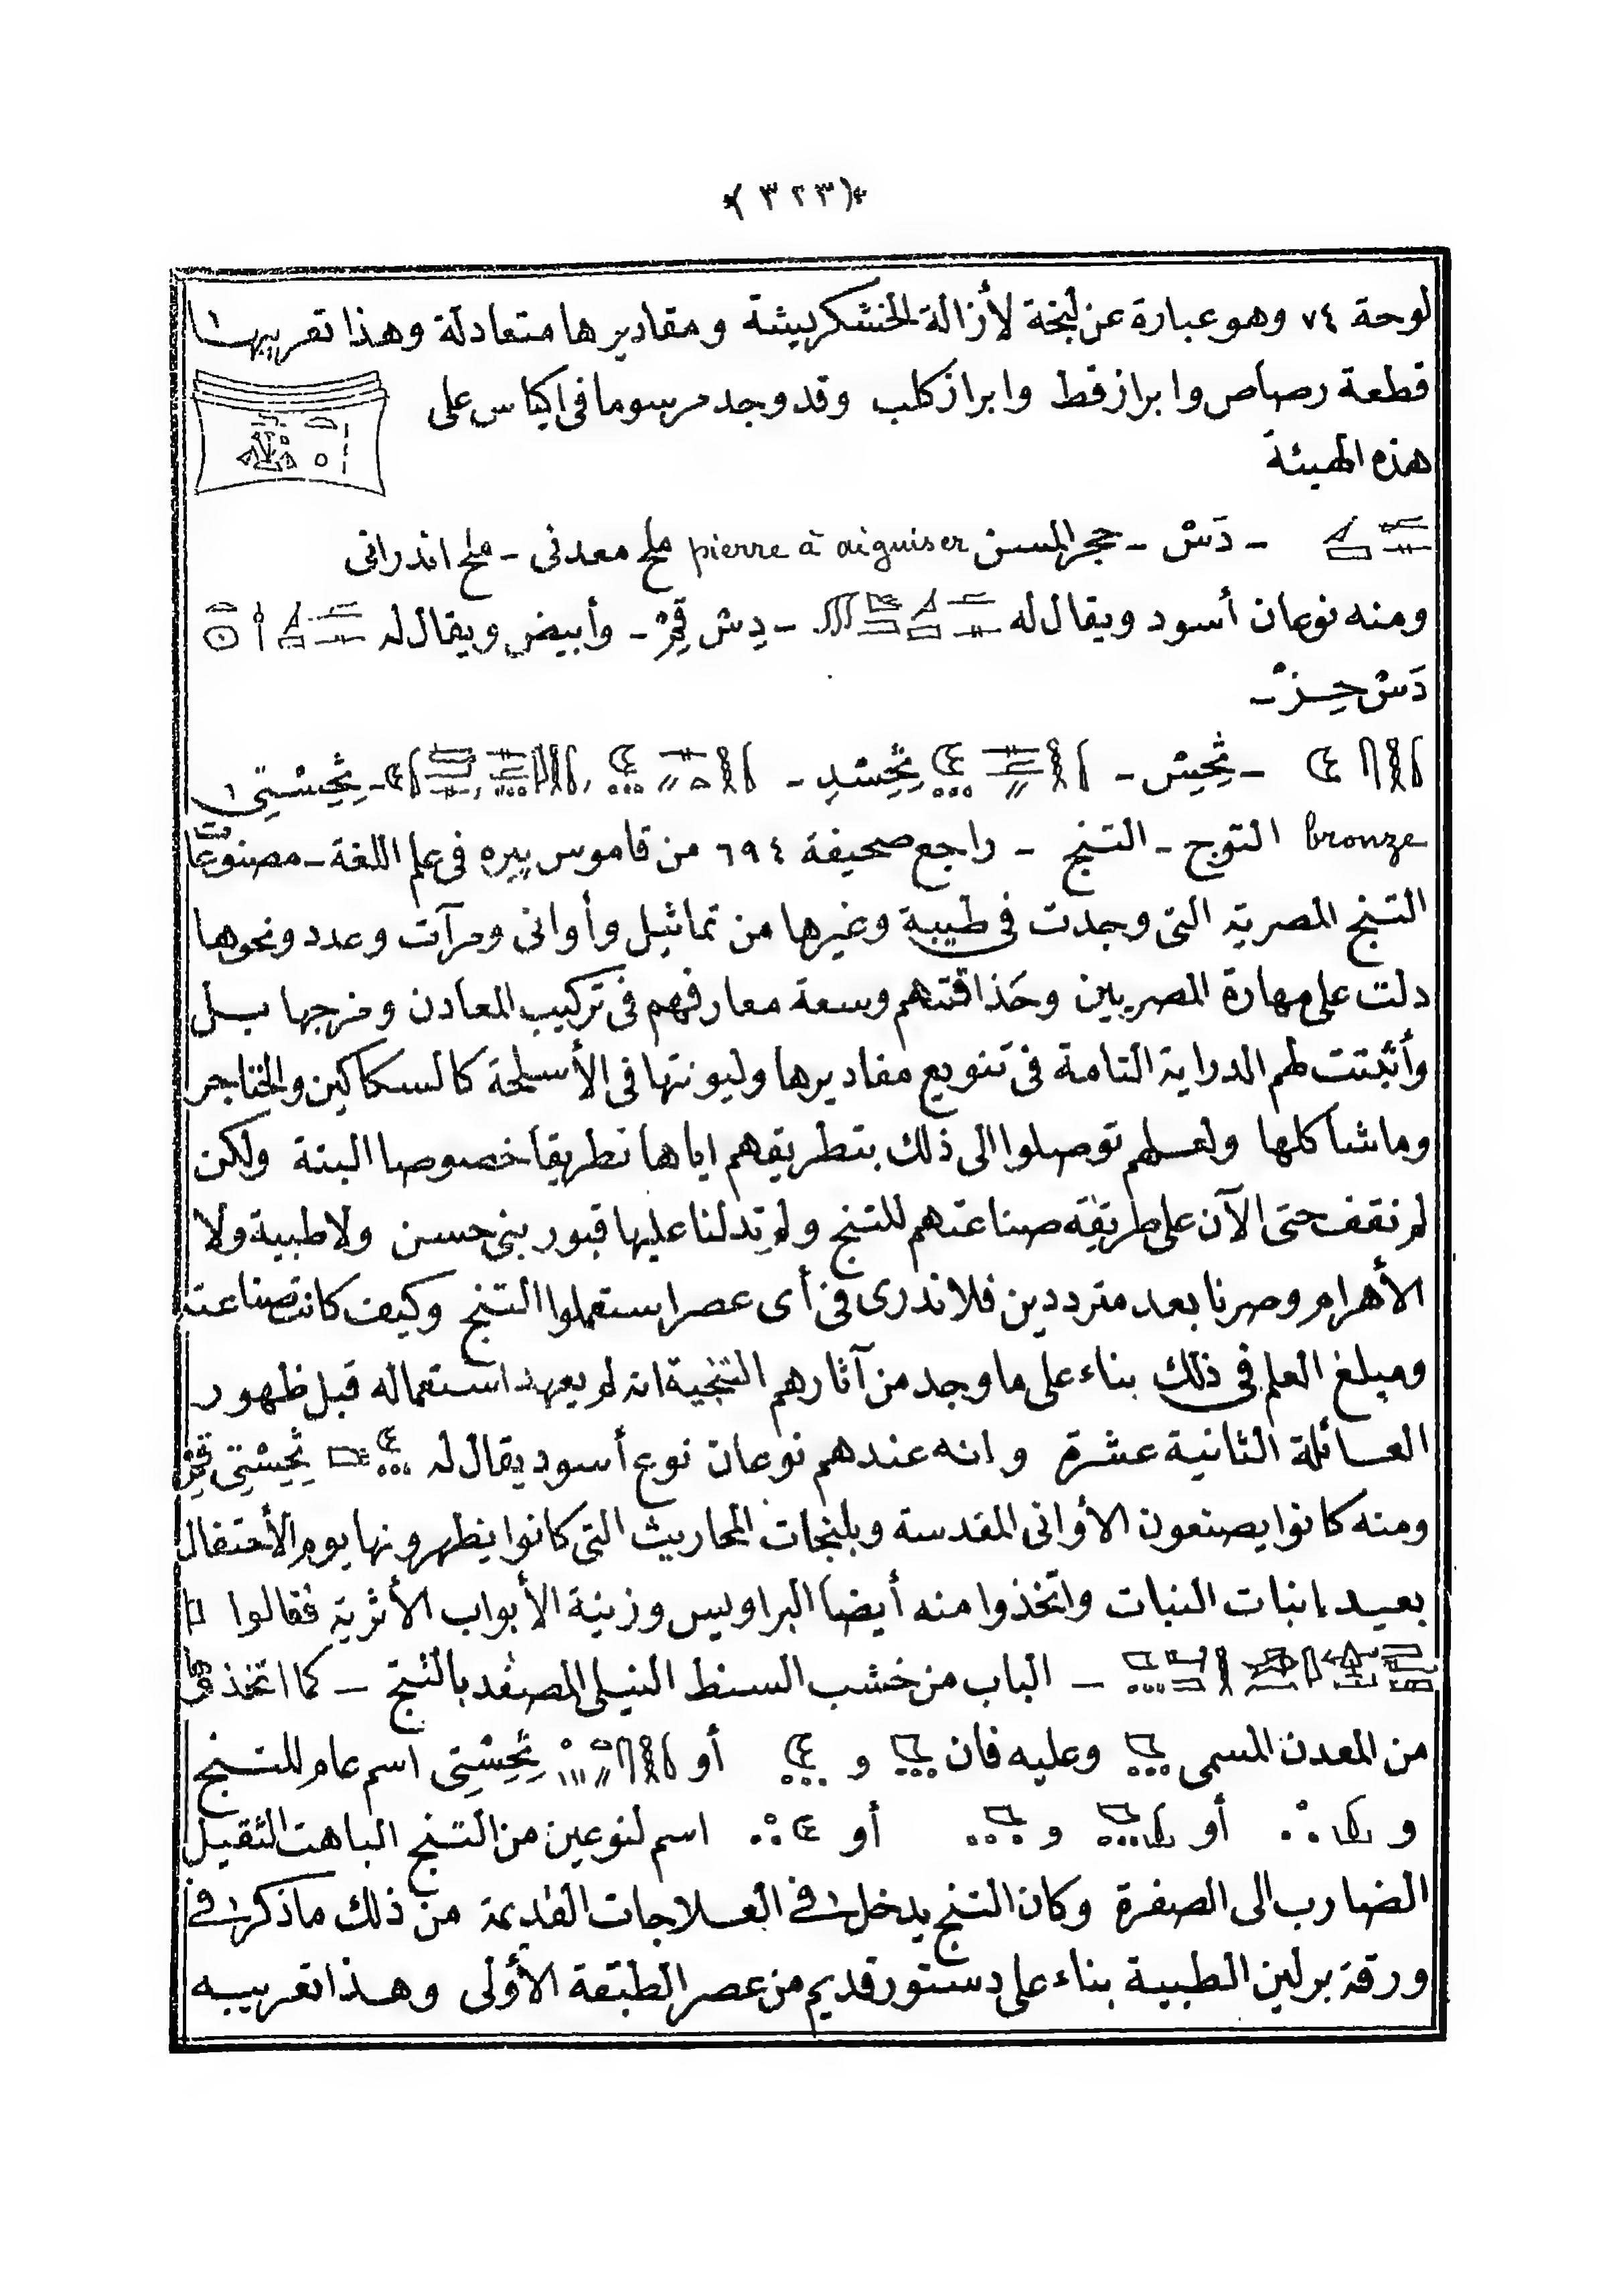 ﴿٣٢٣﴾
لوحة ٧٤ وهو عبارة عن لبخة لأزالة الخشكريشة ومقاديرها متعادلة وهذا تعريبها
قطعة رصاص وا براز قط وا براز كلب وقد وجد مرسوما فى اكياس على
هذه الهيئة
ـ دَسْ ـ حجر المسن pierre à aiguiser ملح معدنى ـ ملح اندرانى
ومنه نوعان أسود ويقال له ـ دِسْ قِمْ ـ وأبيض ويقال له
دَسْ حِـزْ ـ
ـ تِحِسْ ـ تِحِسْدِ ـ ـ تِحِسْتِى
bronze التوج ـ التنج ـ راجع صحيفة ٦٩٤ من قاموس بيره فى علم اللغة ـ مصنوعات
التنج المصرية التى وجدت فى طيبة وغيرها من تماثيل وأوانى ومرآت وعدد ونحوها
دلت على مهارة المصريين وحَذاقتهم وسعة معارفهم فى تركيب المعادن ومزجها بـل
وأثبتت لهم الدراية التامة فى تنويع مقاديرها وليونتها فى الأسلحة كالسكاكين والخناجر
وماشاكلها ولعلهم توصلوا الى ذلك بتطريقهم اياها تطريقا خصوصا البتة ولكن
لم نقف حتى الآن على طريقة صناعتهم للتنج ولم تدلنا عليها قبور بنى حسن ولا طيبة ولا
الأهرام وصرنا بعد مترددين فلا ندرى فى أى عصر استعملوا التنج وكيف كانت صناعته
ومبلغ العلم فى ذلك بناء على ما وجد من آثارهم التنجية انه لم يعهد استعماله قبل ظهور
العـائلة الثانية عشرة وانه عندهم نوعان نوع أسود يقال له تِحِسْتِى قِمْ
ومنه كانوا يصنعون الأوانى المقدسة وبلنجات المحاريث التى كانوا يظهرونها يوم الأحتفال
بعيـد إنبات النبات واتخذوا منه أيضا البراويس وزينة الأبواب الأثرية فقالوا
ـ الباب من خشب السنط النيلى المصفد بالتنج ـ كما اتخذ
من المعدن المسمى وعليه فان و أو تِحِسْتِى اسم عام للتـنج
و أو و أو اسم لنوعين من التنج الباهت الثقيل
الضارب الى الصفرة وكان التنج يدخل فى العـلاجات القديمة من ذلك ماذكر فى
ورقة برلين الطبية بناء على دستور قديم من عصر الطبقة الأولى وهـذا تعريبـه